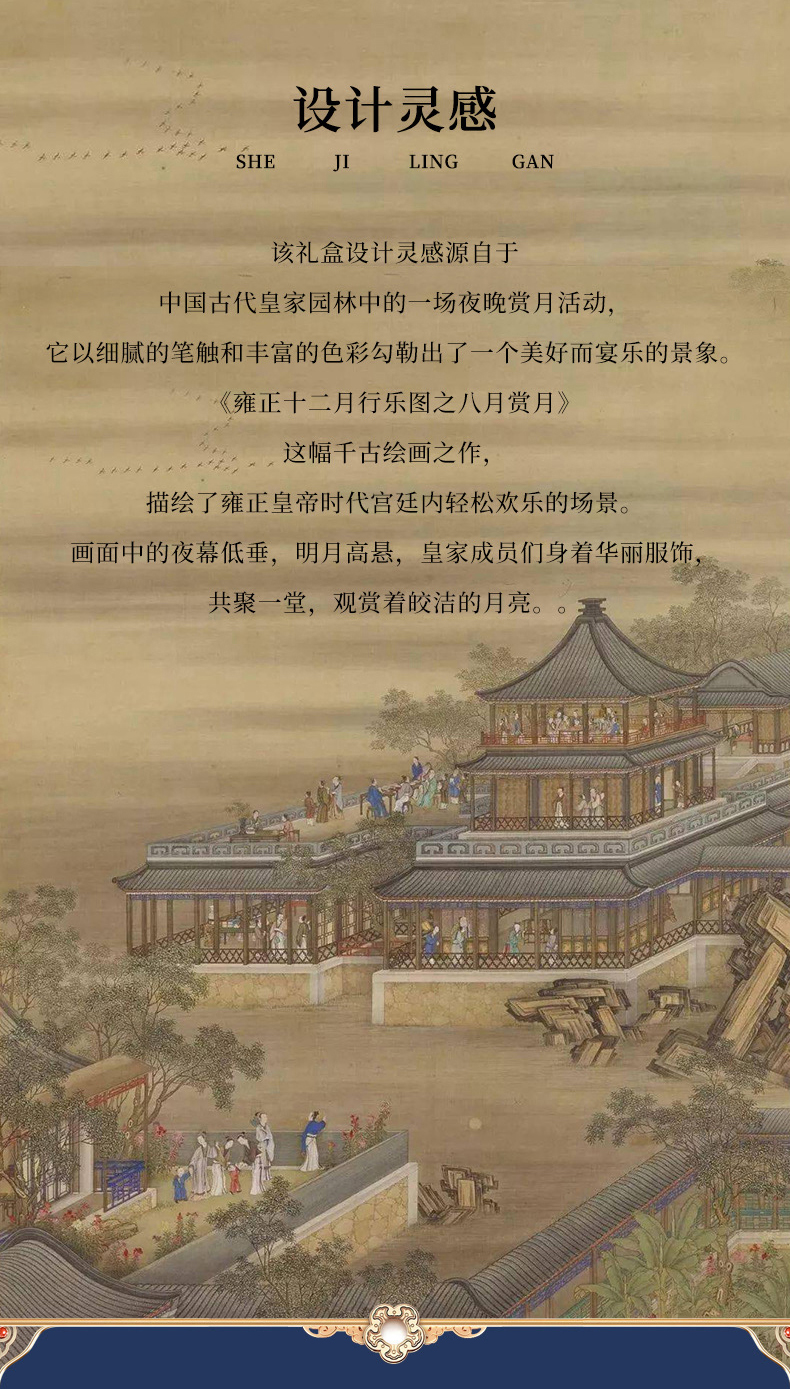 设计灵感
SHE JI LING GAN
该礼盒设计灵感源自于
中国古代皇家园林中的一场夜晚赏月活动，
它以细腻的笔触和丰富的色彩勾勒出了一个美好而宴乐的景象。
《雍正十二月行乐图之八月赏月》
这幅千古绘画之作，
描绘了雍正皇帝时代宫廷内轻松欢乐的场景。
画面中的夜幕低垂，明月高悬，皇家成员们身着华丽服饰，
共聚一堂，观赏着皎洁的月亮。。